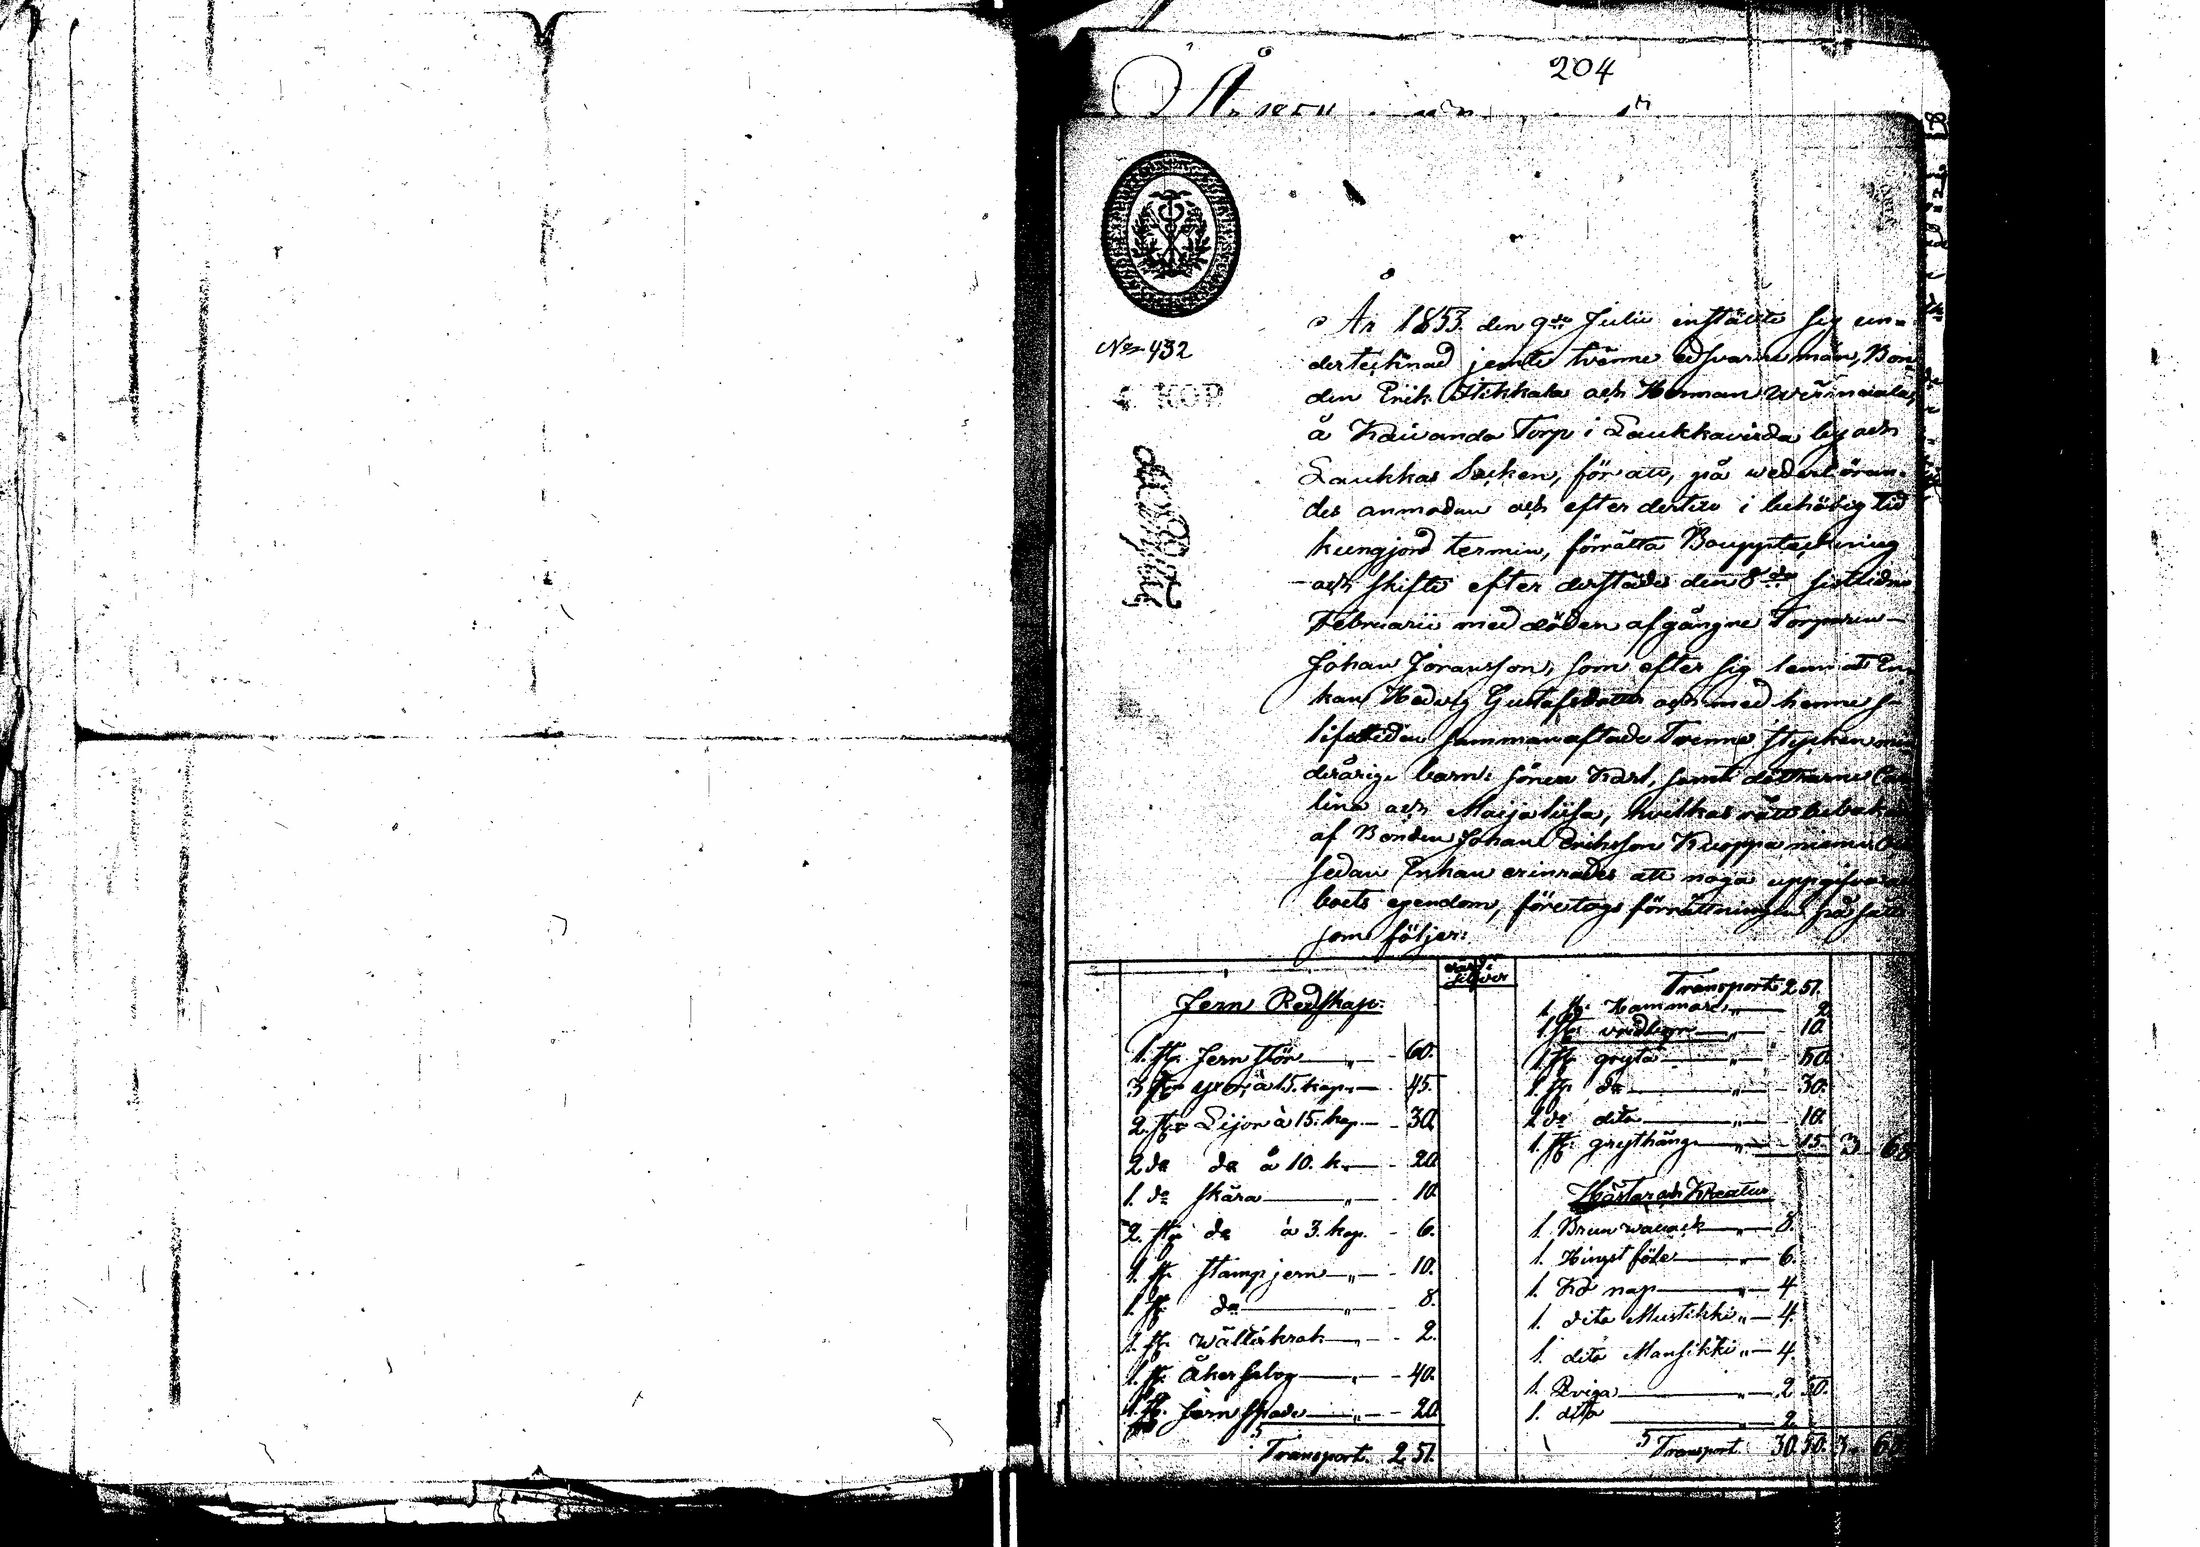 204
År
År 1853 den 9de Julii instälte sig un-
No 432
dertecknad jemte tvänne edsvarne män, Bon-
den Erik Itikkala och Herman
4 KOP.
å Kaivanda Torp i Laukkavirda by och
Laukkas Socken, för att, på wederböran-
des anmodan och efter dertill i behörig tid
kungjord termin, förrätta Bouppteckning
och skifte efter derstädes den 8de sistledne
Februarii med döden afgångne Torparen
Johan Jöransson, som efter sig lemnat En-
kan Hedvig Gustafsdotter och med henne i
lifstiden sammanaflade Trenne stycken min
derårige barn: sönen Karl, samt döttrarne Ca
lina och Maijalisa, hvilkas rätt bevakas
af Bonden Johan Eriksson Kuoppaniemi. Och
sedan Enkan erinrades att noga uppgifva
boets egendom, företogs förrättningen på sätt
som följer:
Silfver
Jern Redskap:
1. st. Jern stör 60.
3 st. yxor à 15. kop. 45.
2. st. Lijor à 15. kop. 30.
2 do do à 10. k. 20.
1. do skära 10.
2. st. do à 3. kop. 6.
1. st. stampjern 10.
1. st. do 8.
1. st. 2.
1. st. Åker 40.
1. st. Jern spade 20.
Transport. 2 51.
Transport 2 51.
1. st. Hammare 2
1. st. 10.
1. st. gryta 50.
1. st. do 30.
1 do dito 10.
1. st. grythäng 15. 3 68
Hästar och Kreatur
1. Brun wallack 8.
1. Hingst föle 6.
1. Ko 4
1. dito Mustikki 4.
1. dito Mansikki 4.
1. Qviga 2 50.
1. dito 2
Transport 30 50. 3 68